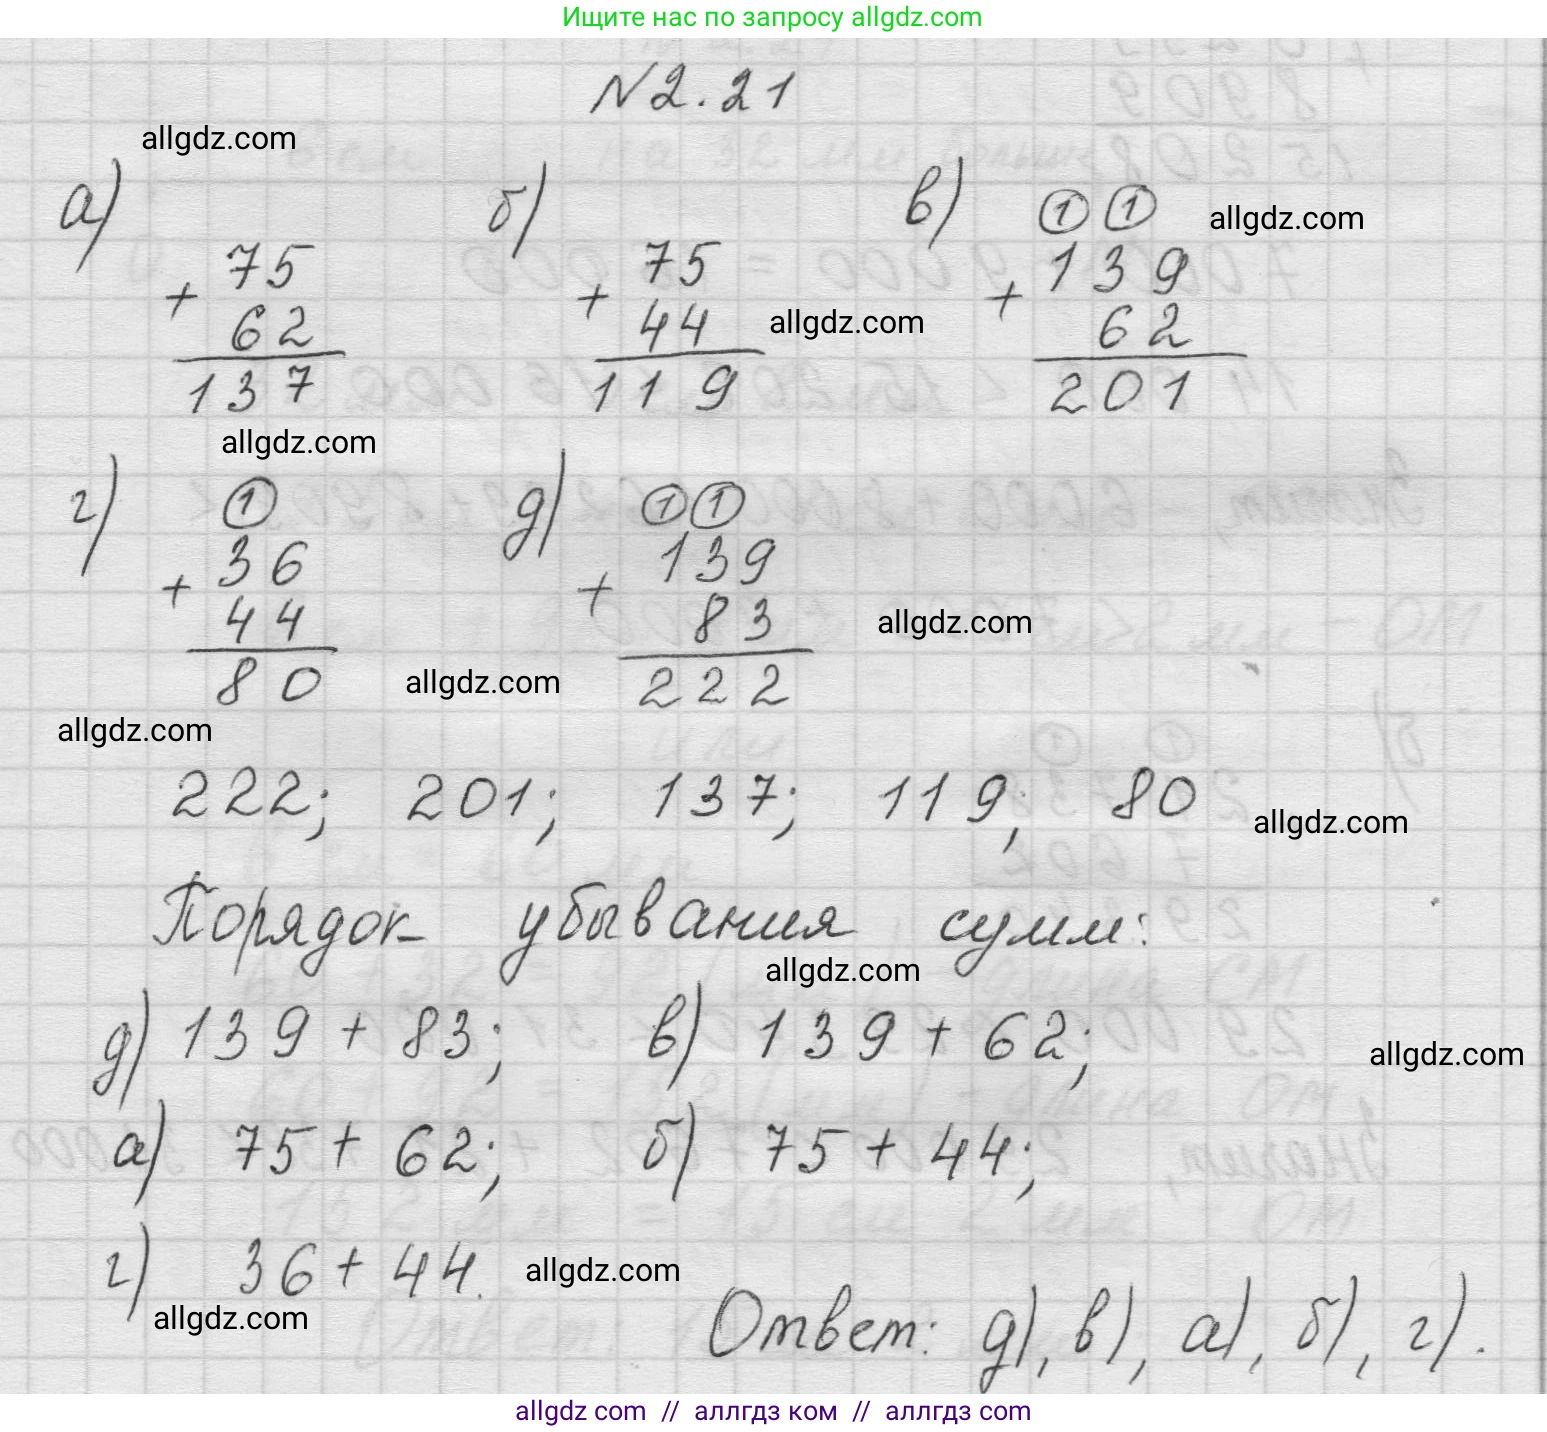 Ищите нас по запросу allgdz.com
N2.21
allgdz.com
а) б) в) 1 1 allgdz.com
+ 75 + 75 + 139
62 44 allgdz.com 62
137 119 201
allgdz.com
г) 1 д) 1 1
+ 36 + 139
44 83 allgdz.com
80 allgdz.com 222
allgdz.com
222; 201; 137; 119; 80
allgdz.com
Порядок убывания сумм:
allgdz.com
д) 139 + 83; в) 139 + 62;
allgdz.com
а) 75 + 62; б) 75 + 44;
г) 36 + 44. allgdz.com
allgdz.com
Ответ: д), в), а), б), г).
allgdz com // аллгдз ком // аллгдз com